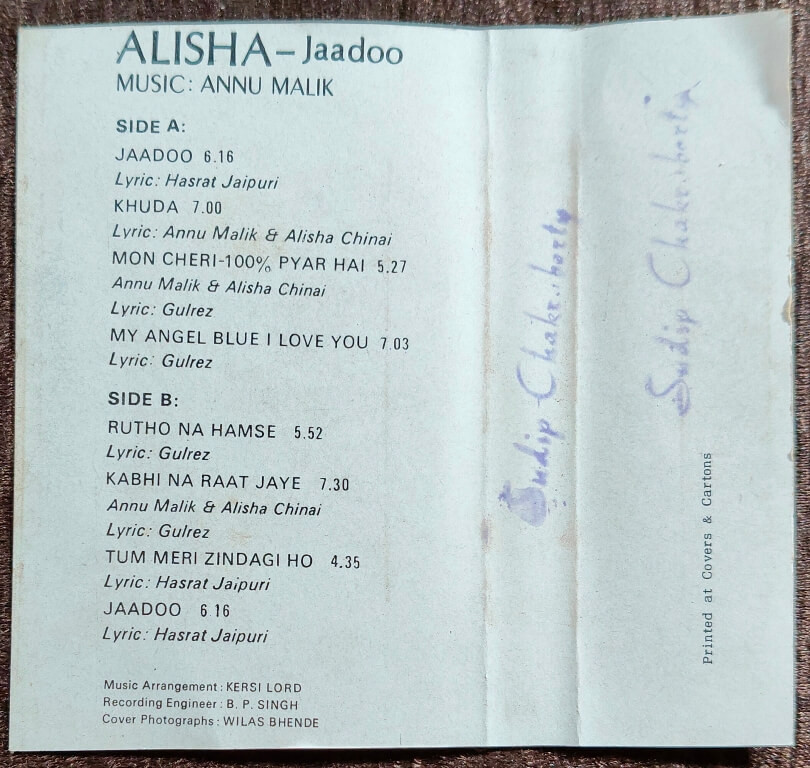 ALISHA – Jaadoo
MUSIC: ANNU MALIK
SIDE A:
JAADOO 6.16
Lyric: Hasrat Jaipuri
KHUDA 7.00
Lyric: Annu Malik & Alisha Chinai
MON CHERI-100% PYAR HAI 5.27
Annu Malik & Alisha Chinai
Lyric: Gulrez
MY ANGEL BLUE I LOVE YOU 7.03
Lyric: Gulrez
SIDE B:
RUTHO NA HAMSE 5.52
Lyric: Gulrez
KABHI NA RAAT JAYE 7.30
Annu Malik & Alisha Chinai
Lyric: Gulrez
TUM MERI ZINDAGI HO 4.35
Lyric: Hasrat Jaipuri
JAADOO 6 16
Lyric: Hasrat Jaipuri
Music Arrangement : KERSI LORD
Recording Engineer : B. P. SINGH
Cover Photographs : WILAS BHENDE
Sudip Chakraborty
Sudip Chakraborty
Printed at Covers & Cartons